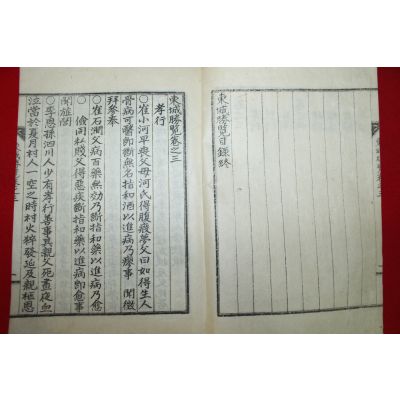 東城勝覽目錄終
東城勝覽卷之三
孝行
○崔小河早喪父母河氏得腹病夢父曰如得生人
骨病可醫卽斷無名指和酒以進病乃療事聞徵
拜參奉
○崔石潤父病百藥無効乃斷指和藥以進病乃愈
○儉同私賤父得惡疾斷指和藥以進病卽愈事
聞旌閭
○李恩孫泗川人少有孝行善事其親父死晝夜血
泣當於夏月村人一空之時村火猝發延及親柩恩